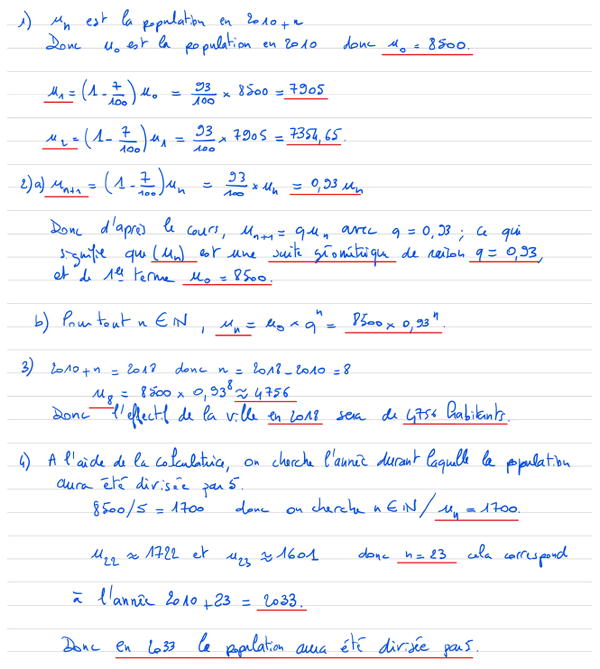 1) u_n est la population en 2010+n
Donc u_0 est la population en 2010 donc u_0 = 8500.
u_1 = (1 - 7/100) u_0 = 93/100 × 8500 = 7905
u_2 = (1 - 7/100) u_1 = 93/100 × 7905 = 7351,65.
2) a) u_{n+1} = (1 - 7/100) u_n = 93/100 × u_n = 0,93 u_n
Donc d'après le cours, u_{n+1} = q u_n avec q = 0,93 ; ce qui
signifie que (u_n) est une suite géométrique de raison q = 0,93,
et de 1er terme u_0 = 8500.
b) Pour tout n ∈ ℕ, u_n = u_0 × q^n = 8500 × 0,93^n.
3) 2010+n = 2018 donc n = 2018-2010 = 8
u_8 = 8500 × 0,93^8 ≈ 4756
Donc l'effectif de la ville en 2018 sera de 4756 habitants.
4) A l'aide de la calculatrice, on cherche l'année durant laquelle la population
aura été divisée par 5.
8500/5 = 1700 donc on cherche n ∈ ℕ / u_n = 1700.
u_22 ≈ 1722 et u_23 ≈ 1601 donc n = 23 cela correspond
à l'année 2010+23 = 2033.
Donc en 2033 la population aura été divisée par 5.